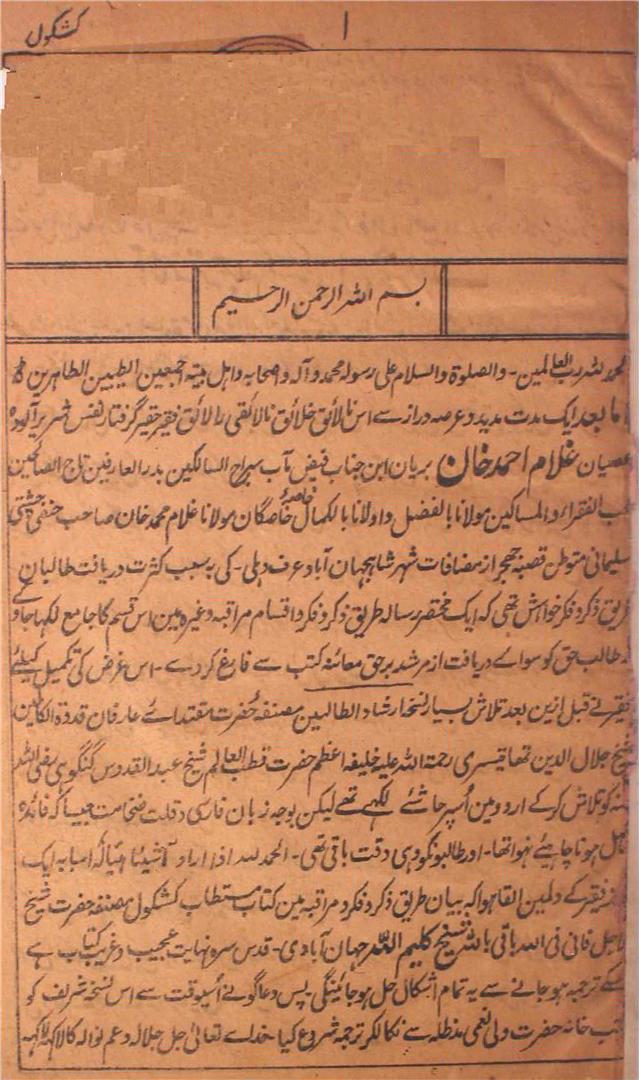 کشکول
۱
بسم اللہ الرحمن الرحیم
الحمد للہ رب العالمین۔ والصلوۃ والسلام علی رسولہ محمد وآلہ واصحابہ واہل بیتہ اجمعین الطیبین الطاہرین
اما بعد ایک مدت مدید وعرصہ دراز سے اس نالائق خلائق نالائقی را لائق فقیر حقیر گرفتار نفس شریر آلودہ
عصیان غلام احمد خان بریان ابن جناب فیض مآب سراج السالکین بدر العارفین تاج الصالحین
محب الفقراء والمساکین مولانا بالفضل واولانا بالکمال خاصۂ خاصگان مولانا غلام محمد خان صاحب حنفی چشتی
سلیمانی متوطن قصبہ جھجر از مضافات شہر شاہجہان آباد عرف دہلی۔ کی بہ سبب کثرت دریافت طالبان
طریق ذکر وفکر خواہش تھی کہ ایک مختصر رسالہ طریق ذکر وفکر واقسام مراقبہ وغیرہ مین اس قسم کا جامع لکھا جاوے
کہ طالب حق کو سواے دریافت از مرشد برحق معائنہ کتب سے فارغ کردے۔ اس غرض کی تکمیل کیلئے
فقیر نے قبل ازین بعد تلاش بسیار نسخہ ارشاد الطالبین مصنفہ حضرت مقتداے عارفان قدوۃ الکاملین
شیخ جلال الدین تھانیسری رحمۃ اللہ علیہ خلیفہ اعظم حضرت قطب العالم شیخ عبد القدوس گنگوہی رضی اللہ
عنہ کو تلاش کرکے اردو مین اُسپر حاشئے لکھے تھے لیکن بوجہ زبان فارسی وقلت ضخامت جیسا کہ فائدہ
حاصل ہونا چاہیئے نہوا تھا۔ اور طالبونکو وہی دقت باقی تھی۔ الحمد للہ اذا اراد اللہ شیئا ہیأ لہ اسبابہ ایک
روز فقیر کے دلمین القا ہوا کہ بیان طریق ذکر وفکر ومراقبہ مین کتاب مستطاب کشکول مصنفہ حضرت شیخ
کامل فانی فی اللہ باقی باللہ شیخ کلیم اللہ جہان آبادی۔ قدس سرہ نہایت عجیب وغریب کتاب ہے
اسکے ترجمہ ہوجانے سے یہ تمام اشکال حل ہوجائینگی۔ پس دعاگو نے اُسیوقت سے اس نسخہ شریف کو
کتب خانہ حضرت ولی نعمی مدظلہ سے نکالکر ترجمہ شروع کیا۔ خداے تعالیٰ جل جلالہ وعم نوالہ کا لاکھ لاکھ